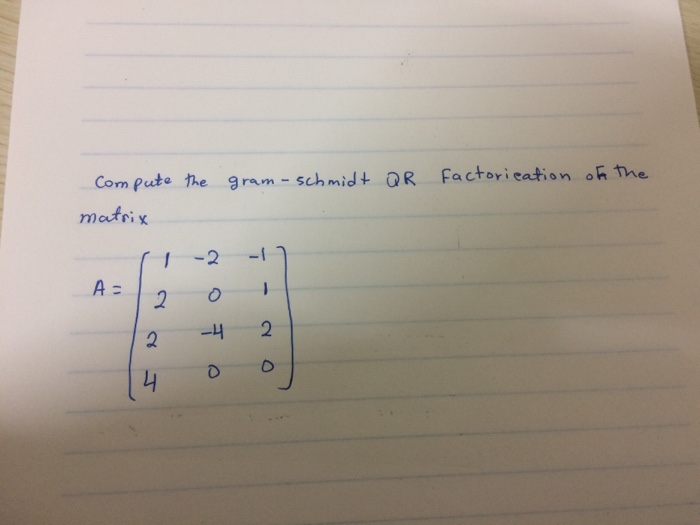 Compute the gram-schmidt QR Factorieation of the
matrix
1 -2 -1
A = 2 0 1
2 -4 2
4 0 0